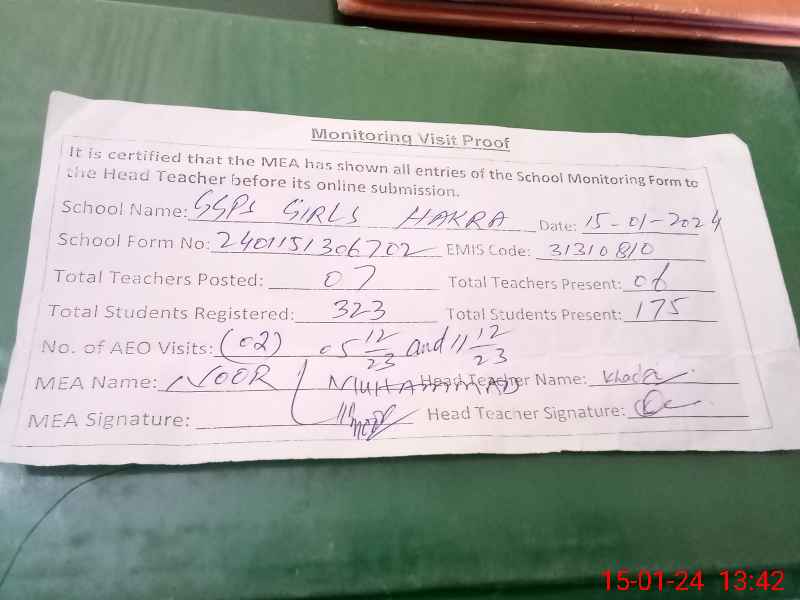 Monitoring Visit Proof
It is certified that the MEA has shown all entries of the School Monitoring Form to
the Head Teacher before its online submission.
School Name: GGPS GIRLS HAKRA Date: 15-01-2024
School Form No: 2401151306702 EMIS Code: 31310810
Total Teachers Posted: 07 Total Teachers Present: 06
Total Students Registered: 323 Total Students Present: 175
No. of AEO Visits: (02) 05 12/23 and 11 12/23
MEA Name: NOOR MUHAMMAD Head Teacher Name:
MEA Signature: Head Teacher Signature:
15-01-24 13:42